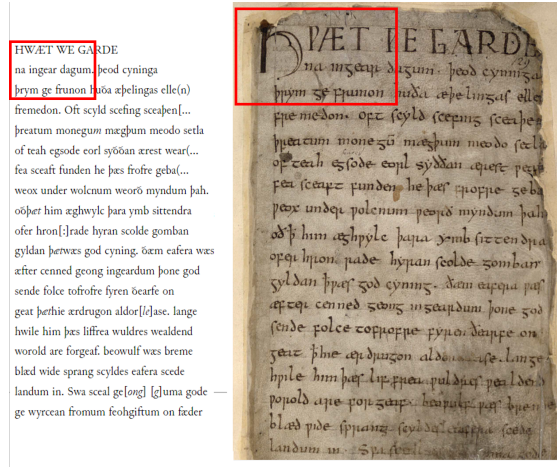 HWÆT WE GARDE
na ingear dagum. þeod cyninga
þrym ge frunon huða æþelingas elle(n)
fremedon. Oft scyld scefing sceaþen[...
þreatum monegum mægþum meodo setla
of teah egsode eorl syððan ærest wear(...
fea sceaft funden he þæs frofre geba(...
weox under wolcnum weorð myndum þah.
oðþæt him æghwylc þara ymb sittendra
ofer hron[:]rade hyran scolde gomban
gyldan þætwæs god cyning. ðæm eafera wæs
æfter cenned geong ingeardum þone god
sende folce tofrofre fyren ðearfe on
geat þæthie ærdrugon aldor[le]ase. lange
hwile him þæs liffrea wuldres wealdend
worold are forgeaf. beowulf wæs breme
blæd wide sprang scyldes eafera scede
landum in. Swa sceal ge[ong] [g]uma gode
ge wyrcean fromum feohgiftum on fæder
HǷÆT ǷE GARDE
na ingear dagum. þeod cyninga
þrym ge frunon huða æþelingas elle
fremedon. oft scyld scefing sceaþe
þreatum monegū mægþum meodo setla
of teah egsode eorl syððan ærest ƿea
fea sceaft funden he þæs frofre geba
ƿeox under ƿolcnum ƿeorð myndum þah
oðꝥ him æghƿylc þara ymb sittendra
ofer hron rade hyran scolde gomban
gyldan þæs god cyning. ðæm eafera ƿæs
æfter cenned geong ingeardum þone god
sende folce tofrofre fyren ðearfe on
geat ꝥhie ærdrugon aldor ase. lange
hƿile him þæs liffrea ƿuldres ƿealdend
ƿorold are forgeaf. beoƿulf ƿæs breme
blæd ƿide sprang scyldes eafera scede
landum in.